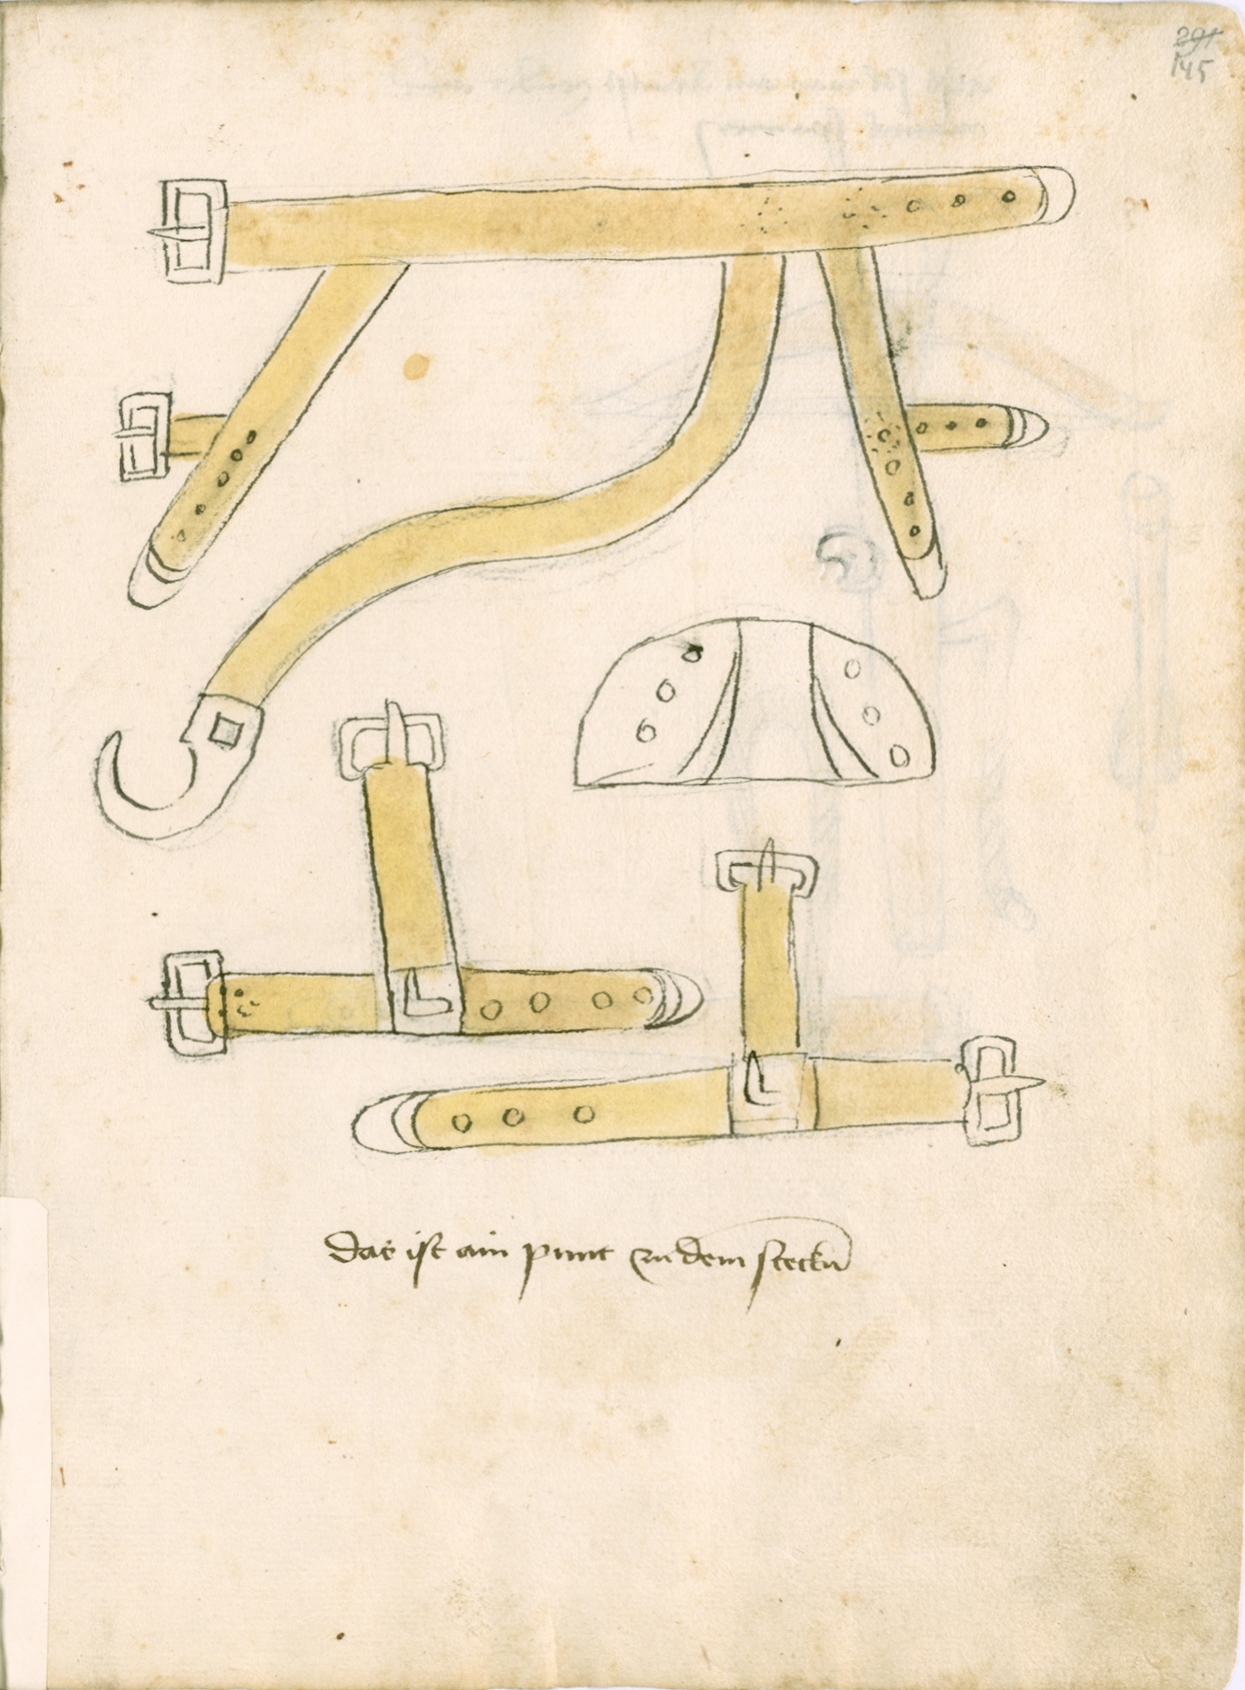 291
145
das ist ain punt zu dem steckn